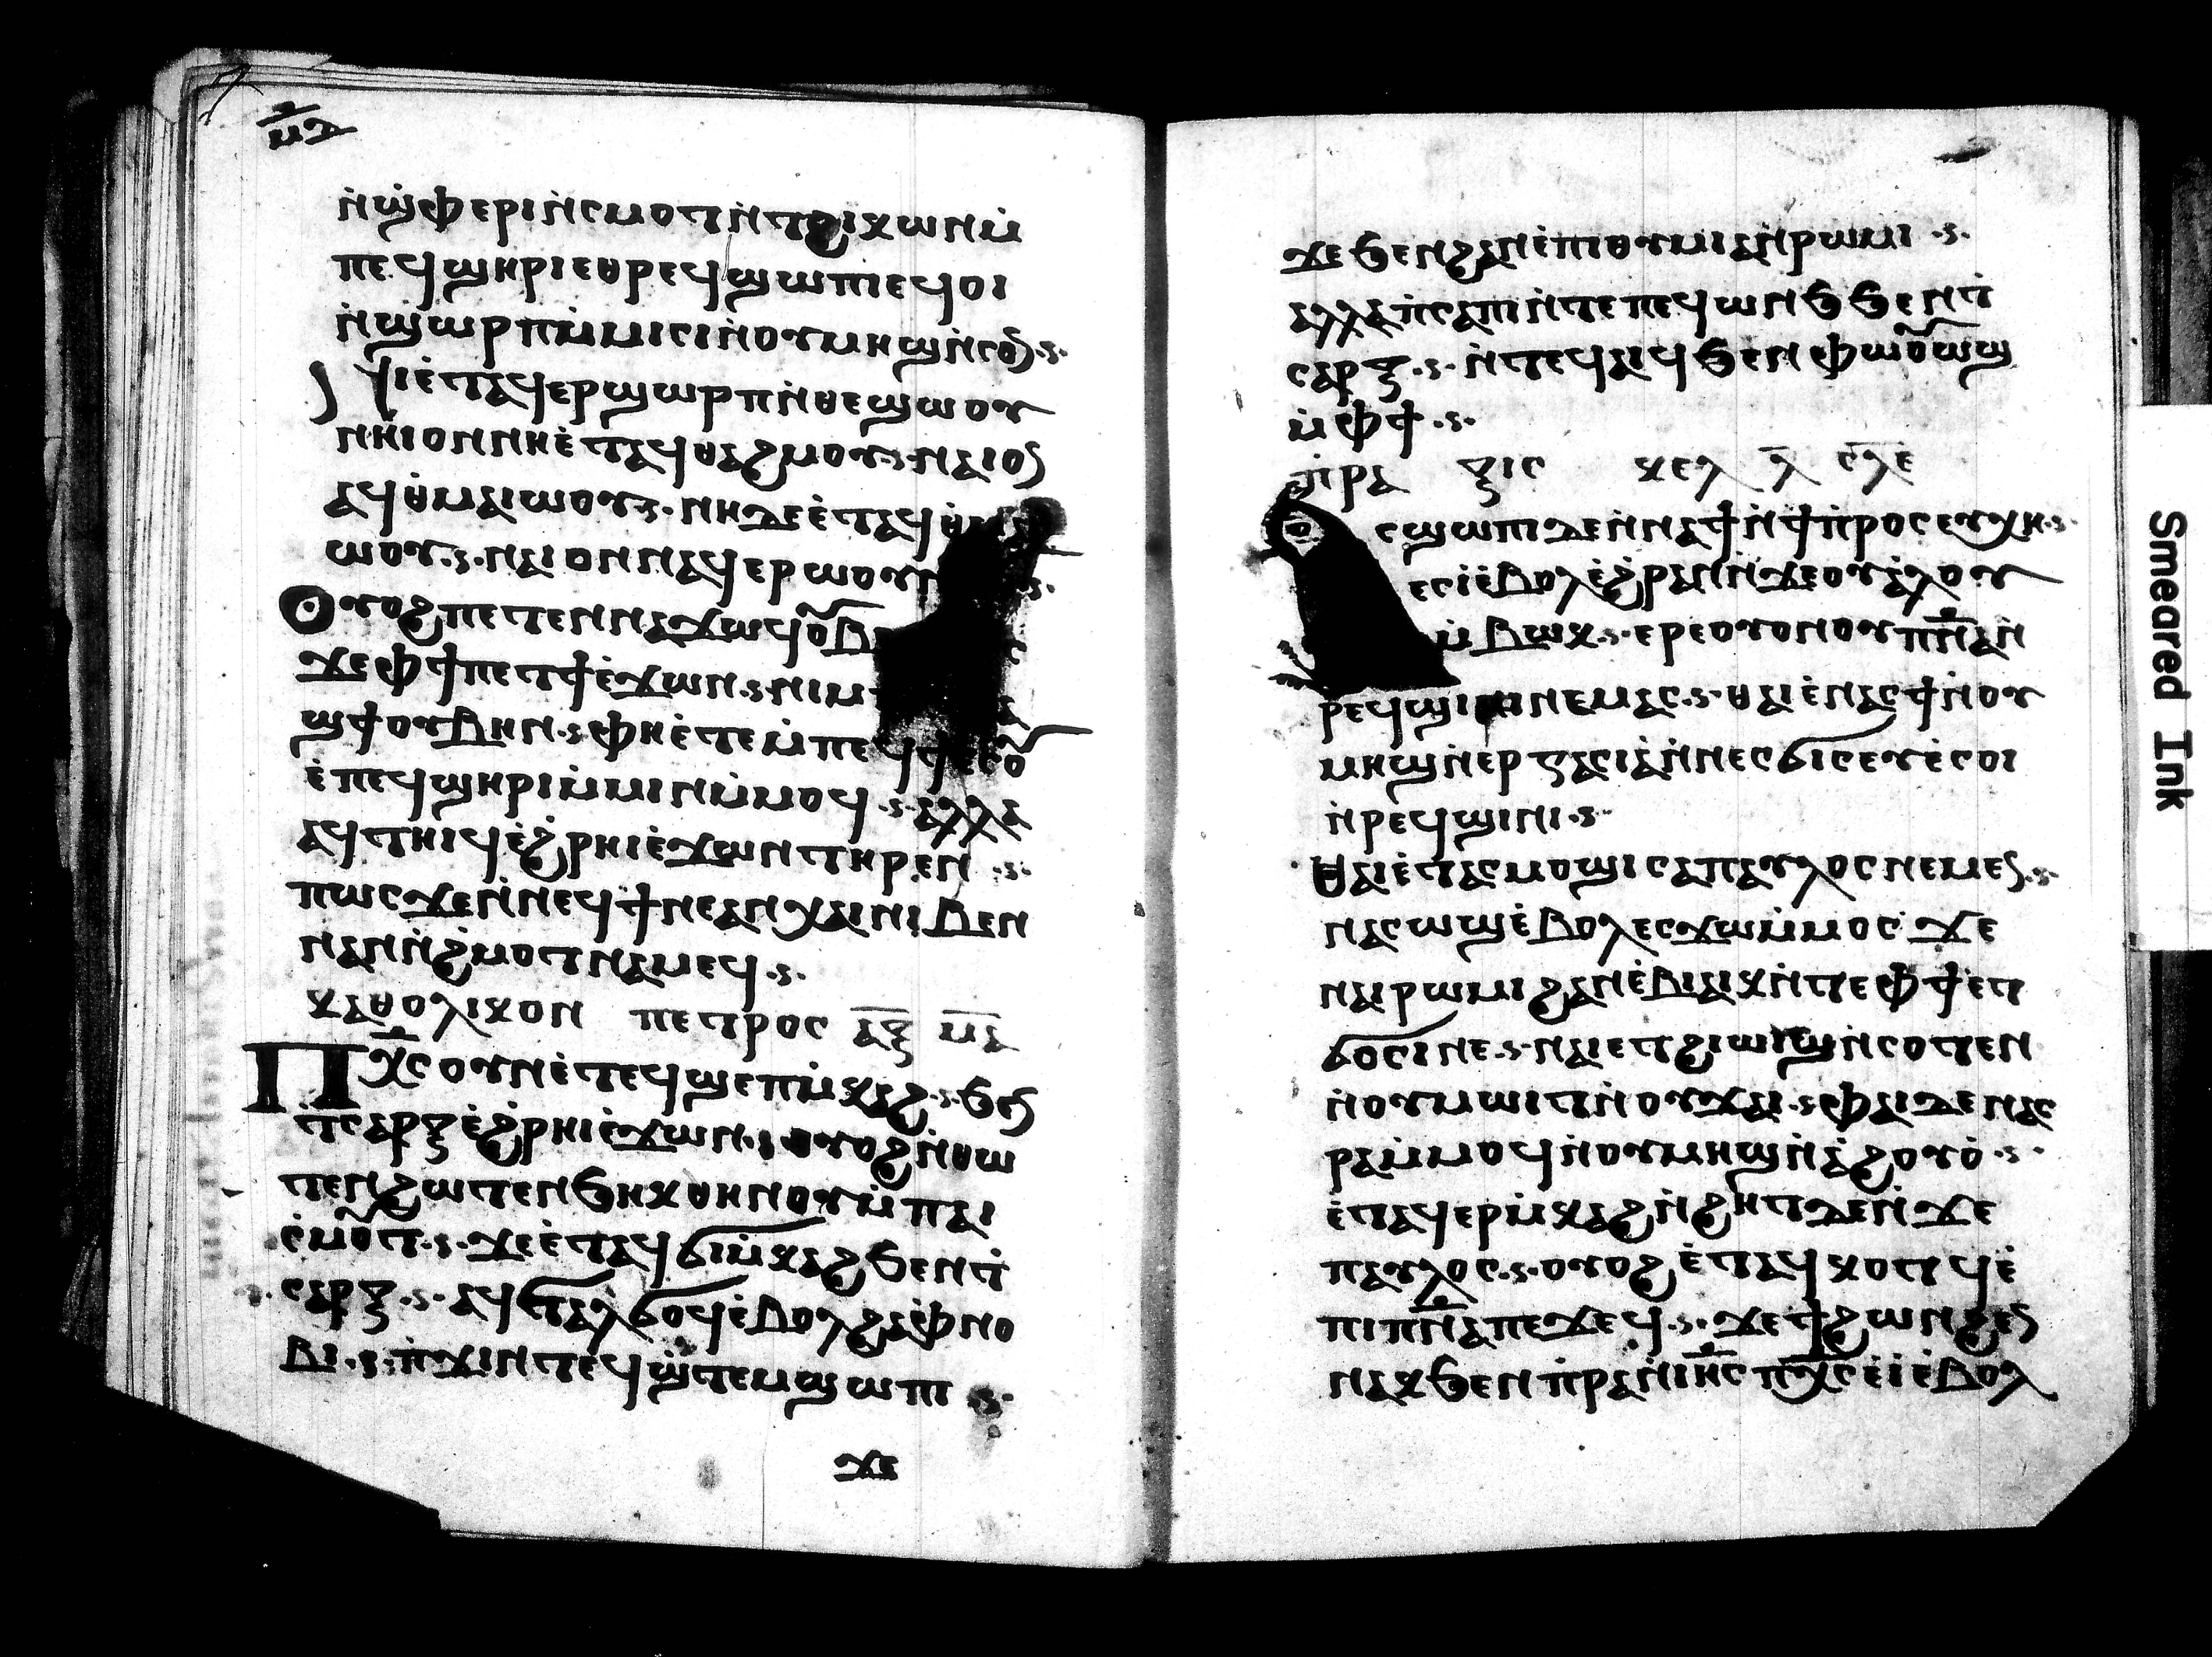 ⲙ̅ⲋ̅
ⲛ̀ϣ̀ⲫⲉⲣⲓⲛ̀ⲥⲙⲟⲧⲛ̀ⲧϩⲓⲕⲱⲛⲙ̀
ⲡⲉϥϣⲏⲣⲓⲉⲑⲣⲉϥϣⲱⲡⲓⲉϥⲟⲓ
ⲛ̀ϣⲱⲣⲡⲙ̀ⲙⲓⲥⲓⲛ̀ⲟⲩⲙⲏϣⲛ̀ⲥⲟⲛ
ⲛⲏⲉ̀ⲧⲁϥⲉⲣϣⲱⲣⲡⲛ̀ⲑⲉϣⲱⲟⲩ
ⲛⲏⲓⲟⲛⲛⲏⲉ̀ⲧⲁϥⲑⲁϩⲙⲟⲩ ⲛⲁⲓⲟⲛ
ⲁϥⲑ̀ⲙⲁⲓⲱⲟⲩ ⲛⲏⲇⲉⲉ̀ⲧⲁϥⲑ̀
ⲱⲟⲩ ⲛⲁⲓⲟⲛⲛⲁϥⲉⲣⲱⲟⲩ
ⲟⲩⲟϩⲡⲉⲧⲉⲛⲛⲁϫⲱϥⲟⲩⲃⲉ
ϫⲉⲫϯⲡⲉⲧϯⲉ̀ϫⲱⲛ ⲛⲓⲙ
ϣϯⲟⲩⲃⲏⲛ ⲫⲏⲉ̀ⲧⲉⲙ̀ⲡⲉϥϯⲁⲥⲟ
ⲉ̀ⲡⲉϥϣⲏⲣⲓⲙ̀ⲙⲓⲛⲙ̀ⲙⲟϥ ⲁⲗⲗⲁ
ⲁϥⲧⲏⲓϥⲉ̀ϩ̀ⲣⲏⲓⲉ̀ϫⲱⲛⲧⲏⲣⲉⲛ
ⲡⲱⲥϫⲉⲛ̀ⲛⲉϥϯⲛⲉⲁⲛⲭⲁⲓⲛⲓⲃⲉⲛ
ⲛⲁⲛⲛ̀ϩ̀ⲙⲟⲧⲛⲁⲙⲉϥ
ⲕⲁⲑⲟⲗⲓⲕⲟⲛ ⲡⲉⲧⲣⲟⲥ ⲁⲝ̅ ⲙ̅ⲁ̅
ⲡⲭ̅ⲥ̅ⲟⲩⲛⲉ̀ⲧⲉϥϣⲉⲡⲙ̀ⲕⲁϩ ϧⲉⲛ
ⲧⲥⲁⲣⲝⲉ̀ϩ̀ⲣⲏⲓⲉ̀ϫⲱⲛ ⲟⲩⲟϩⲛ̀ⲑⲱ
ⲧⲉⲛϩⲱⲧⲉⲛϧⲏⲕⲑⲏⲛⲟⲩⲙ̀ⲡⲁⲓ
ⲥ̀ⲙⲟⲧ ϫⲉⲉ̀ⲧⲁϥϭⲓⲙ̀ⲕⲁϩϧⲉⲛⲧ̀
ⲥⲁⲣⲝ ⲁϥⲧⲁⲗϭⲟϥⲉ̀ⲃⲟⲗϩⲁⲫ̀ⲛⲟ
ⲃⲓ ⲡ̀ϫⲓⲛⲧⲉϥϣ̀ⲧⲉⲙϣⲱⲡⲓ
ϫⲉ
ϫⲉϧⲉⲛϩⲁⲛⲉ̀ⲡⲓⲑⲩⲙⲓⲁⲛ̀ⲣⲱⲙⲓ
ⲁⲗⲗⲁⲡ̀ⲥⲁⲡⲓⲛ̀ⲧⲉⲡⲉϥⲱⲛϧϧⲉⲛⲧ̀
ⲥⲁⲣⲝ ⲛ̀ⲧⲉϥⲁⲓϥϧⲉⲛⲫⲟⲩⲱϣ
ⲙ̀ⲫϯ
ⲡ̀ⲣⲁ ⲝⲓⲥ ⲕⲉⲗ ⲗ̅ ⲥ̅ⲗ̅ⲉ̅
ⲥϣⲱⲡⲓⲇⲉⲛ̀ⲛⲁϯⲛ̀ϯⲡ̀ⲣⲟⲥⲉⲩⲭⲏ
ⲉⲥⲓ̀ⲉ̀ⲃⲟⲗⲉ̀ϩ̀ⲣⲁⲛⲛ̀ϫⲉⲟⲩⲁ̀ⲗⲟⲩ
ⲙ̀ⲃⲱⲕ ⲉⲣⲉⲟⲩⲟⲛⲟⲩⲡⲛ̅ⲁ̅ⲛ̀
ⲣⲉϥϣⲓⲛⲓⲛⲉⲙⲁⲥ ⲑⲁⲓⲉ̀ⲛⲁⲥϯⲛ̀ⲟⲩ
ⲙⲏϣⲛ̀ⲉⲣⲅⲁⲥⲓⲁ̀ⲛ̀ⲛⲉⲥϭⲓⲥⲉⲩⲉ̀ⲥⲟⲓ
ⲛ̀ⲣⲉϥϣⲓⲛⲓ
ⲑⲁⲓⲉ̀ⲧⲁⲥⲙⲟϣⲓⲥⲁⲡⲁⲩⲗⲟⲥⲛⲉⲙⲉⲛ
ⲛⲁⲥⲱϣⲉ̀ⲃⲟⲗⲉⲥϫⲱⲙ̀ⲙⲟⲥ ϫⲉ
ⲛⲁⲓⲣⲱⲙⲓϩⲁⲛⲉ̀ⲃⲓⲁⲓⲕⲛ̀ⲧⲉⲫϯⲉⲧ
ϭⲟⲥⲓⲛⲉ ⲛⲁⲓⲉⲧϩⲓⲱⲓϣⲛ̀ⲥⲟⲧⲉⲛ
ⲛ̀ⲟⲩⲙⲱⲓⲧⲛ̀ⲟⲩϫⲁⲓ ⲫⲁⲓⲇⲉⲛⲁⲥ
ⲣⲁⲙ̀ⲙⲟϥⲛ̀ⲟⲩⲙⲏϣⲛ̀ⲁ̀ϩⲟⲩⲟ̀
ⲉ̀ⲧⲁϥⲉⲣⲙ̀ⲕⲁϩⲛ̀ϩⲏⲧⲇⲉⲛ̀ϫⲉ
ⲡⲁⲩⲗⲟⲥ ⲟⲩⲟϩⲉ̀ⲧⲁϥⲕⲟⲧϥⲉ̀
ⲡⲓⲡⲛ̅ⲁ̅ⲡⲉϫⲉϥ ϫⲉϯϩⲱⲛϩⲉⲛ
ⲛⲁⲕϧⲉⲛⲡ̀ⲣⲁⲛⲓⲏ̅ⲥ̅ⲡⲭ̅ⲥ̅ⲉ̀ⲓ̀ⲉ̀ⲃⲟⲗ
Smeared Ink